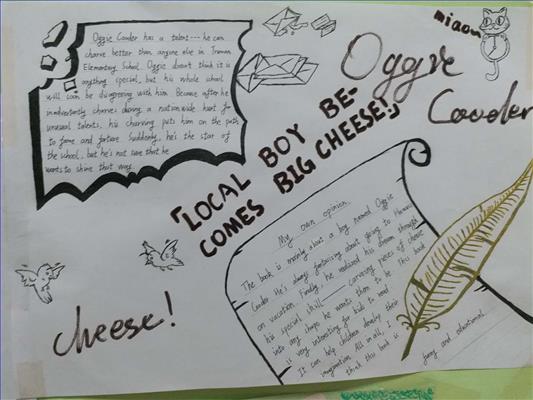 Oggie Cooder has a talent --- he can
charve better than anyone else in Truman
Elementary School. Oggie doesn't think it is
anything special, but his whole school
will soon be disagreeing with him. Because after he
inadvertently charves during a nationwide hunt for
unusual talents, his charving puts him on the path
to fame and fortune. Suddenly, he's the star of
the school, but he's not sure that he
wants to shine that way.
miaou
Oggie
Cooder
「LOCAL BOY BE-
COMES BIG CHEESE!」
My own opinion
The book is mainly about a boy named Oggie
Cooder. He's always fantasizing about going to Hawaii
on vacation. Finally, he realized his dream through
his special skill — carving pieces of cheese
into any shape he wants them to be. This book
is very interesting for kids to read.
It can help children develop their
imagination. All in all, I
think this book is funny and educational.
cheese!